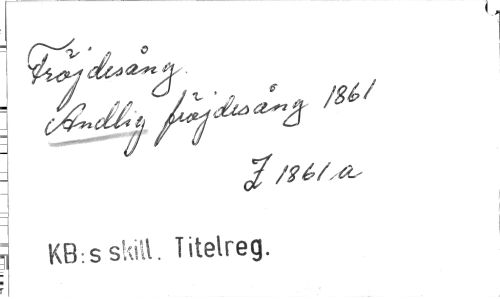 Fröjdesång.
Andlig fröjdesång 1861
Z 1861 a
KB:s skill. Titelreg.